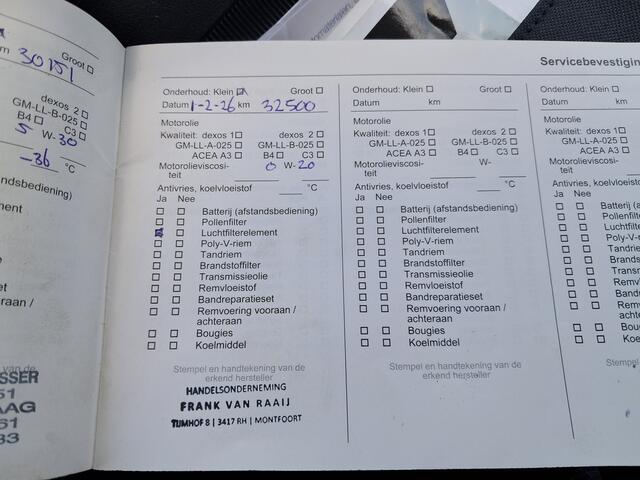 omaterialen
Servicebevestigin
30151
Groot
dexos 2
GM-LL-B-025
B4 C3
5 W-30
-36 °C
ndsbediening)
ement
e
aan /
van de
SSER
51
AAG
61
33
Onderhoud: Klein Groot
Datum 1-2-26 km 32500
Motorolie
Kwaliteit: dexos 1 dexos 2
GM-LL-A-025 GM-LL-B-025
ACEA A3 B4 C3
Motorolieviscosi- 0 W-20
teit
Antivries, koelvloeistof °C
Ja Nee
Batterij (afstandsbediening)
Pollenfilter
Luchtfilterelement
Poly-V-riem
Tandriem
Brandstoffilter
Transmissieolie
Remvloeistof
Bandreparatieset
Remvoering vooraan /
achteraan
Bougies
Koelmiddel
Stempel en handtekening van de
erkend hersteller
HANDELSONDERNEMING
FRANK VAN RAAIJ
TIJMHOF 8 | 3417 RH | MONTFOORT
Onderhoud: Klein Groot
Datum km
Motorolie
Kwaliteit: dexos 1 dexos 2
GM-LL-A-025 GM-LL-B-025
ACEA A3 B4 C3
Motorolieviscosi- W-
teit
Antivries, koelvloeistof °C
Ja Nee
Batterij (afstandsbediening)
Pollenfilter
Luchtfilterelement
Poly-V-riem
Tandriem
Brandstoffilter
Transmissieolie
Remvloeistof
Bandreparatieset
Remvoering vooraan /
achteraan
Bougies
Koelmiddel
Stempel en handtekening van de
erkend hersteller
Onderhoud: Klein
Datum
Motorolie
Kwaliteit: dexos 1
GM-LL-A-025
ACEA A3
Motorolieviscosi-
teit
Antivries, koelvloeistof
Ja Nee
Batterij (a
Pollenfilte
Luchtfilte
Poly-V-rie
Tandriem
Brandsto
Transmis
Remvloe
Bandrep
Remvoe
achtera
Bougie
Koelm
Stempel en h